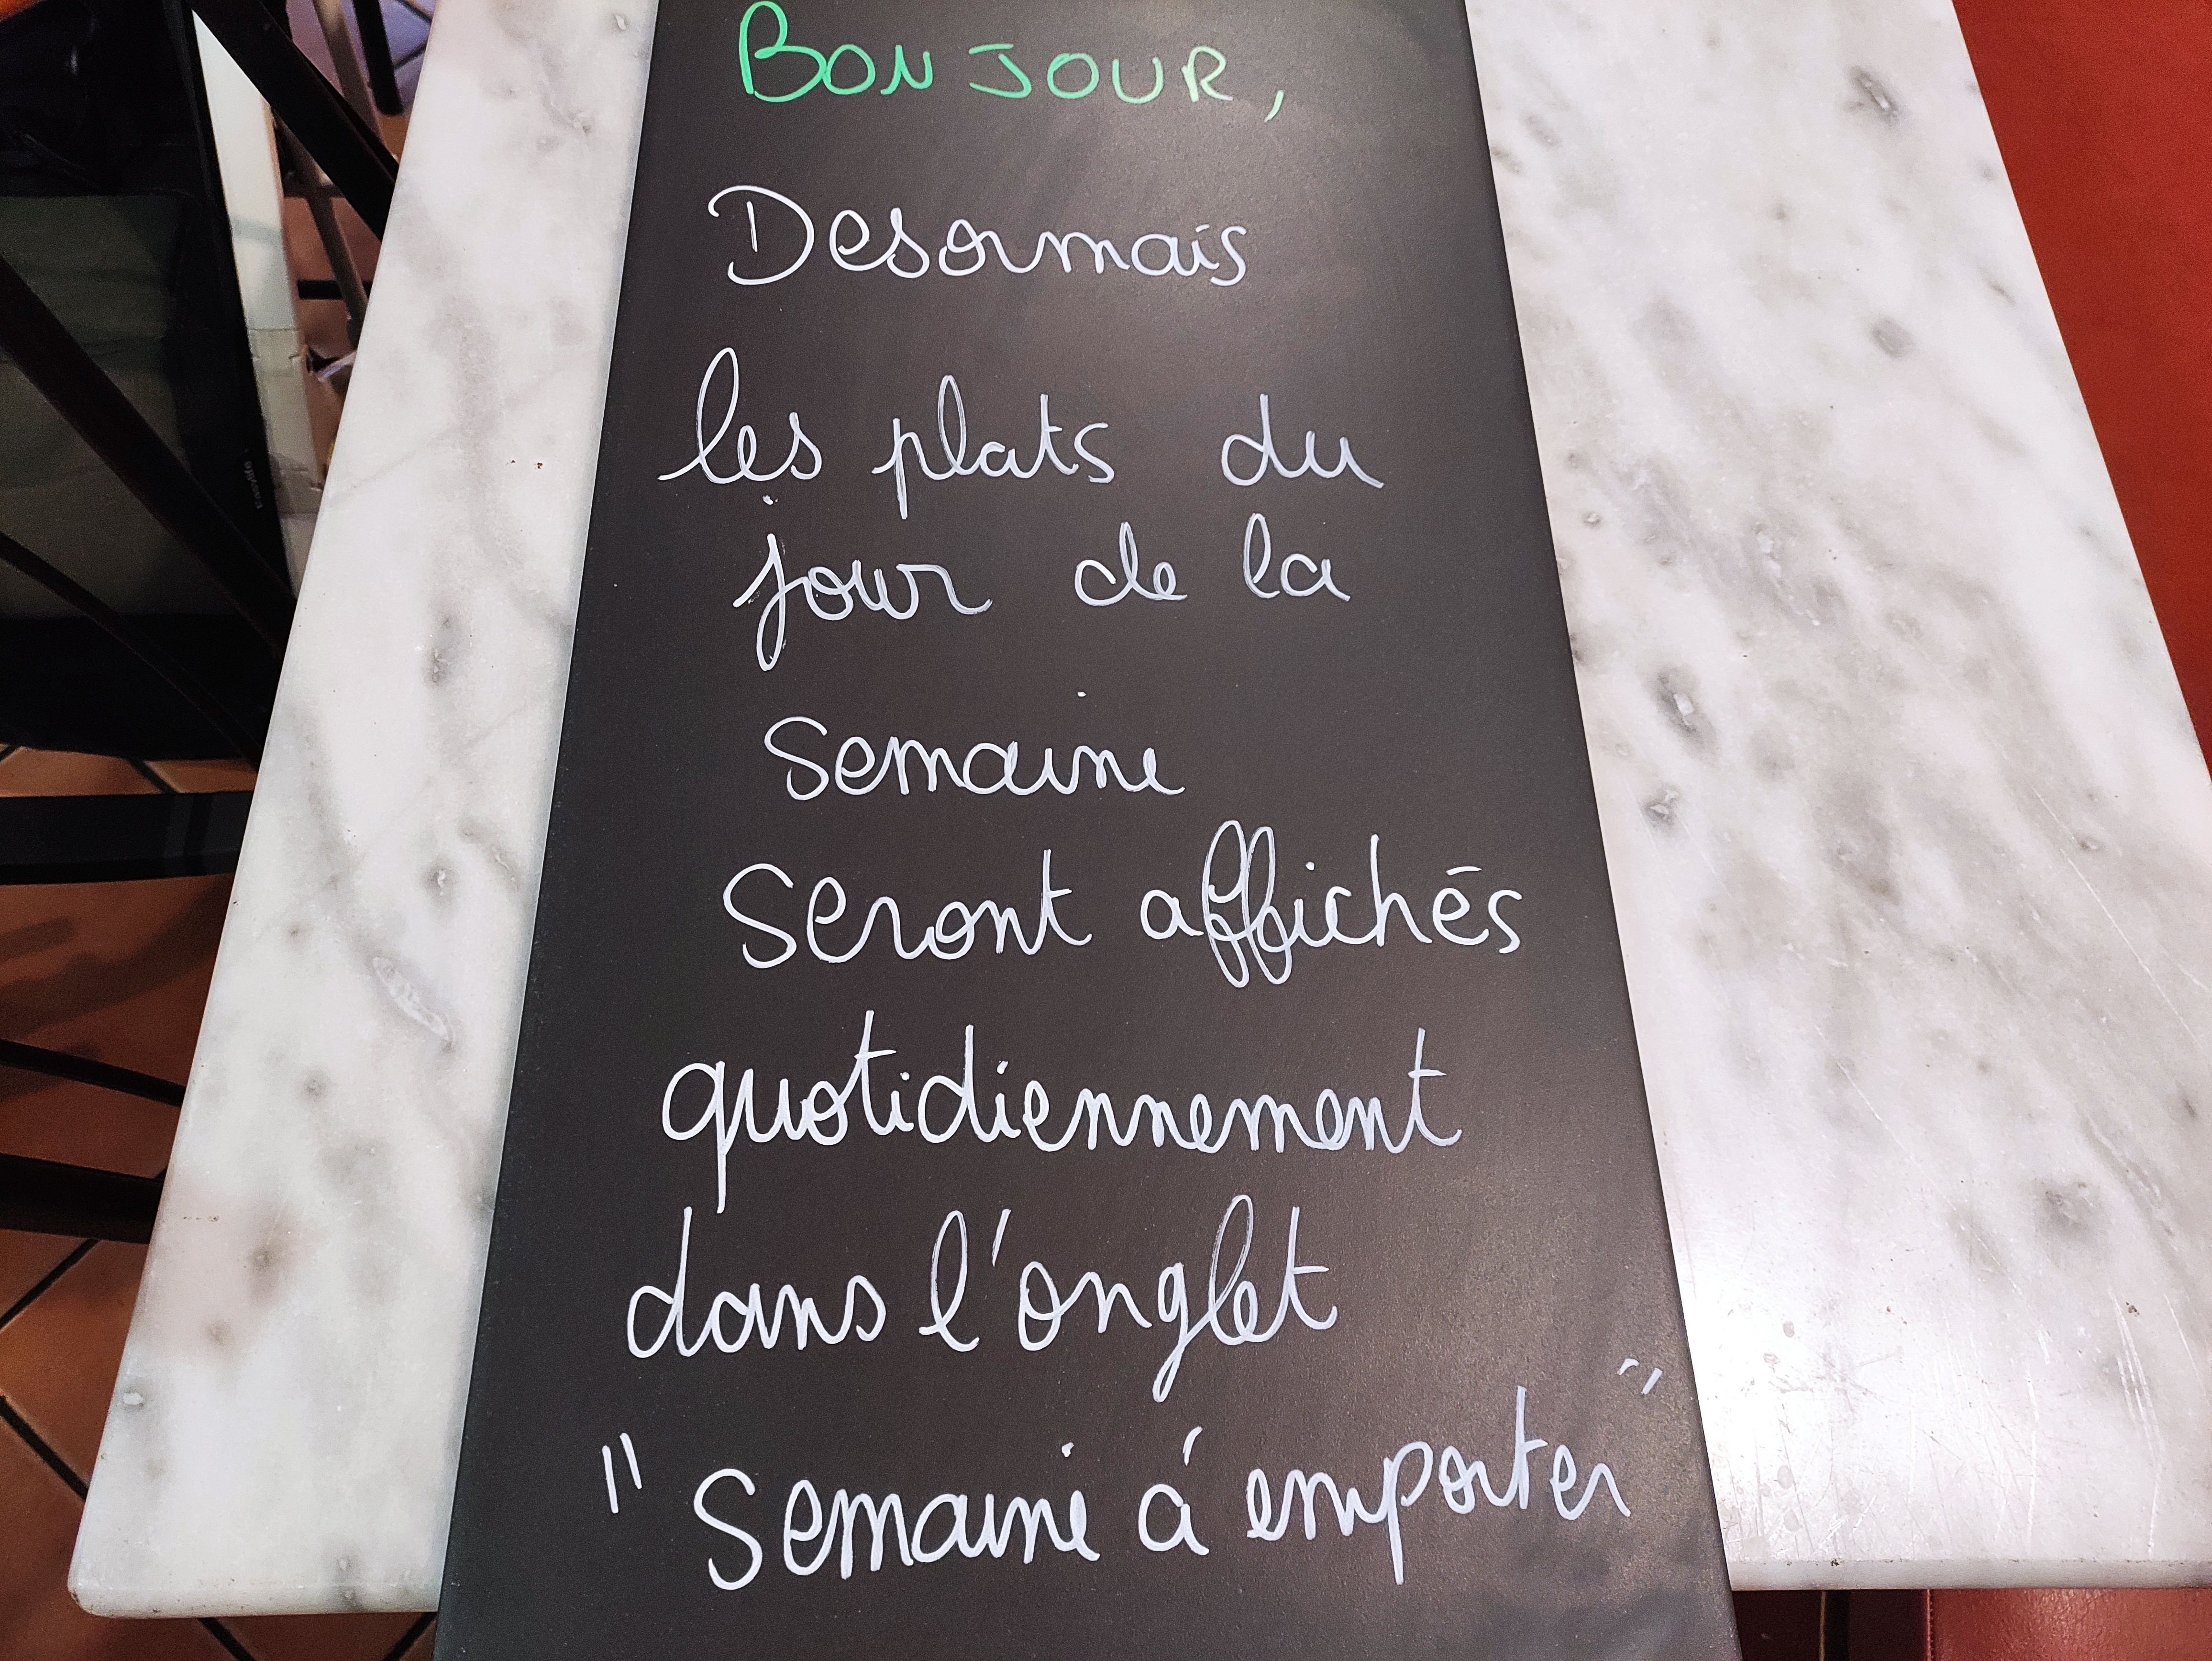 BONJOUR,
Desormais
les plats du
jour de la
Semaine
Seront affichés
quotidiennement
dans l'onglet
"Semaine á emporter"